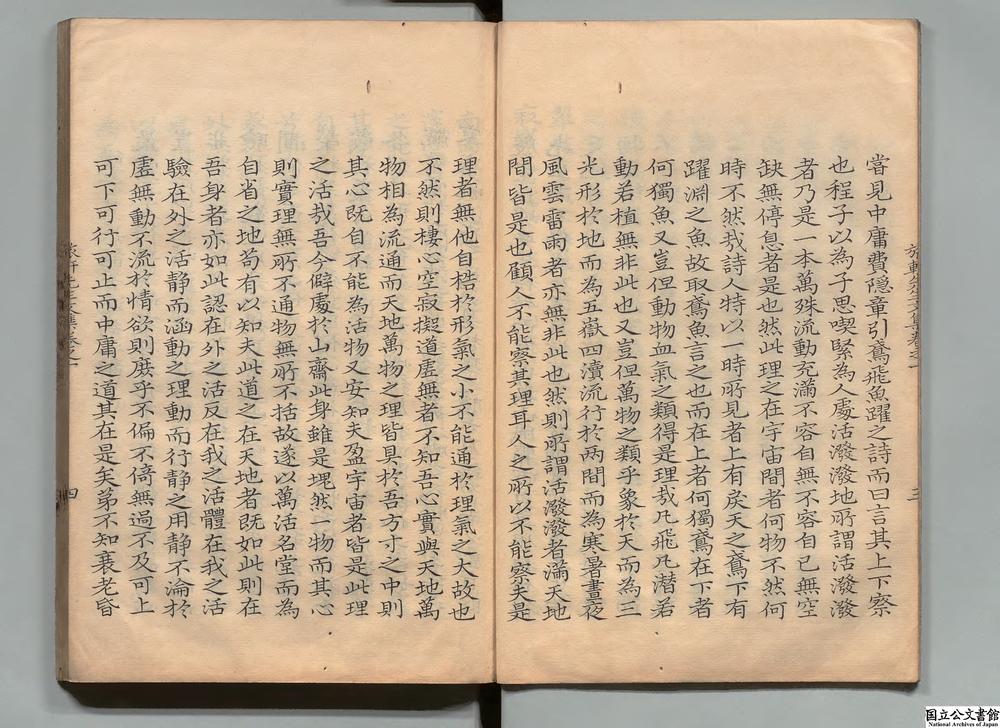 嘗見中庸費隱章引鳶飛魚躍之詩而曰言其上下察
也程子以為子思喫緊為人處活潑潑地所謂活潑潑
者乃是一本萬殊流動充滿不容自無不容自已無空
缺無停息者是也然此理之在宇宙間者何物不然何
時不然哉詩人特以一時所見者上有戾天之鳶下有
躍淵之魚故取鳶魚言之也而在上者何獨鳶在下者
何獨魚又豈但動物血氣之類得是理哉凡飛凡潛若
動若植無非此也又豈但萬物之類乎象於天而為三
光形於地而為五嶽四瀆流行於兩間而為寒暑晝夜
風雲雷雨者亦無非此也然則所謂活潑潑者滿天地
間皆是也顧人不能察其理耳人之所以不能察夫是
三
理者無他自梏於形氣之小不能通於理氣之大故也
不然則棲心空寂擬道虛無者不知吾心實與天地萬
物相為流通而天地萬物之理皆具於吾方寸之中則
其心既自不能為活物又安知夫盈宇宙者皆是此理
之活哉吾今僻處於山齋此身雖是塊然一物而其心
則實理無所不通物無所不括故遂以萬活名堂而為
自省之地苟有以知夫此道之在天地者既如此則在
吾身者亦如此認在外之活反在我之活體在我之活
驗在外之活靜而涵動之理動而行靜之用靜不淪於
虛無動不流於情欲則庶乎不偏不倚無過不及可上
可下可行可止而中庸之道其在是矣第不知衰老昏
四
国立公文書館
National Archives of Japan